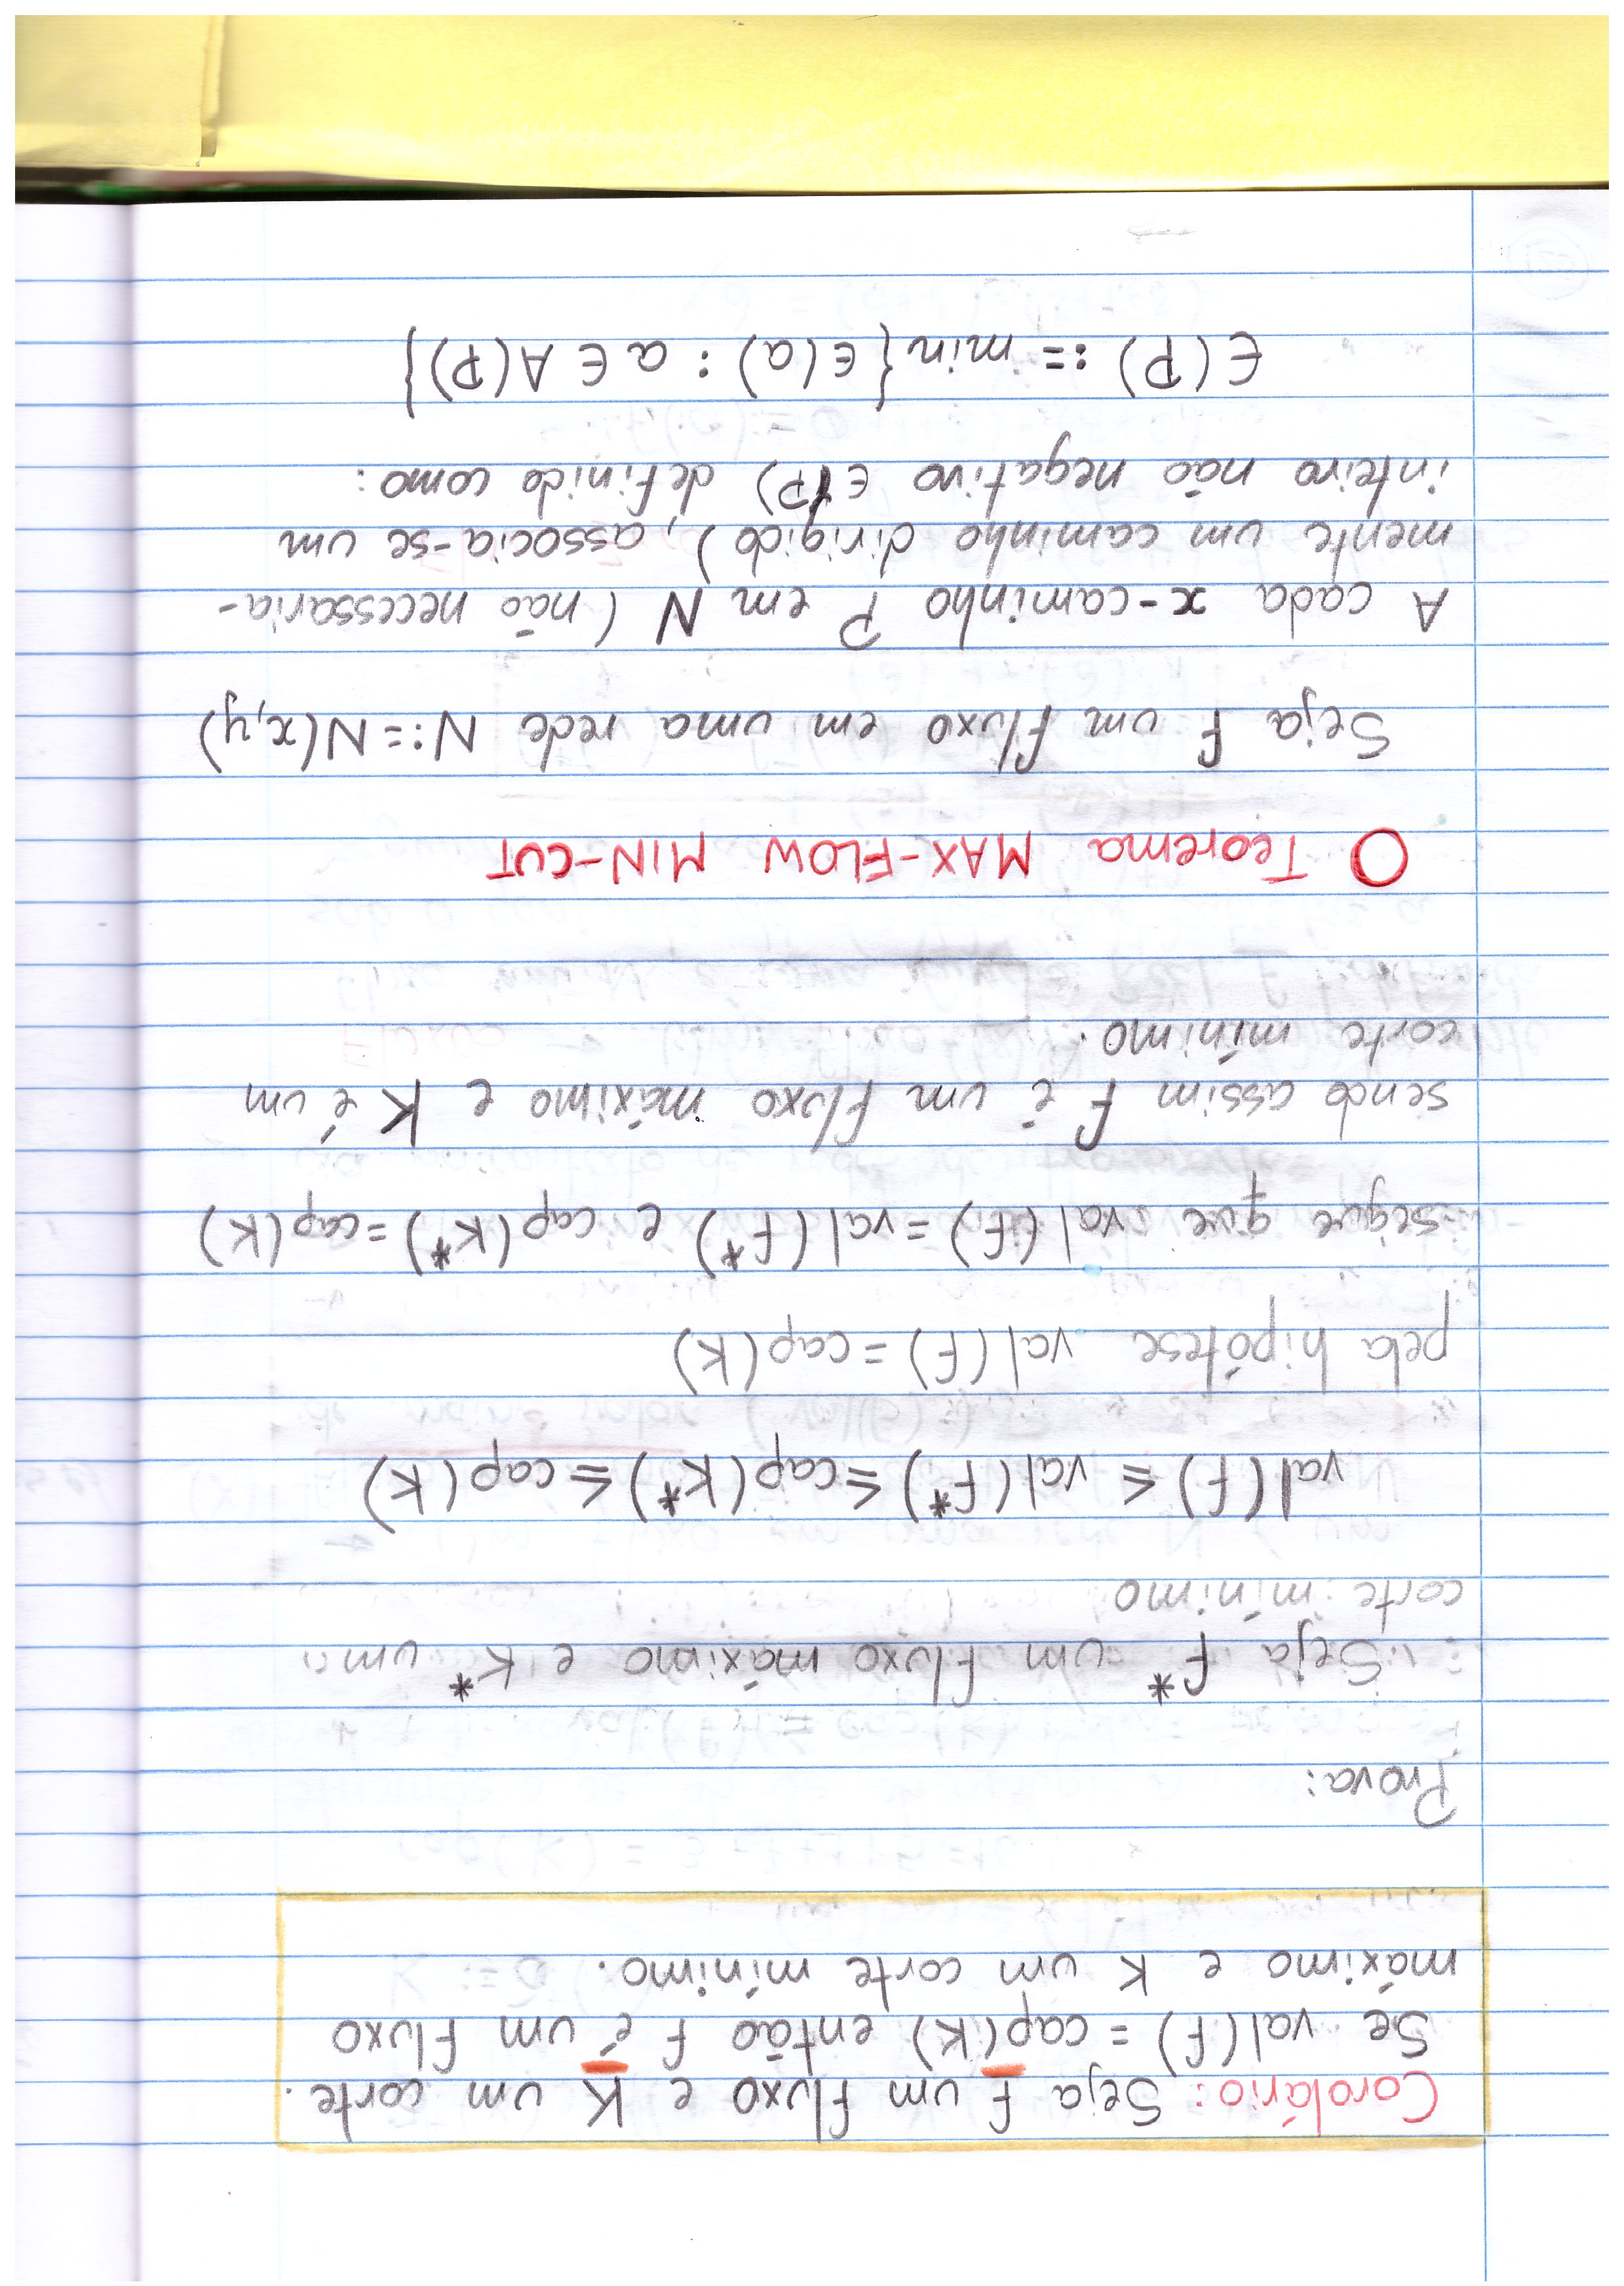 Corolário: Seja f um fluxo e K um corte.
Se val(f) = cap(K) então f é um fluxo
máximo e K um corte mínimo.
Prova:
Seja f* um fluxo máximo e K* um
corte mínimo
val(f) ≤ val(f*) ≤ cap(K*) ≤ cap(K)
pela hipótese val(f) = cap(K)
segue que val(f) = val(f*) e cap(K*) = cap(K)
sendo assim f é um fluxo máximo e K é um
corte mínimo.
O Teorema MAX-FLOW MIN-CUT
Seja f um fluxo em uma rede N := N(x,y)
A cada x-caminho P em N (não necessaria-
mente um caminho dirigido), associa-se um
inteiro não negativo ϵ(P) definido como:
ϵ(P) := min{ϵ(a) : a ∈ A(P)}